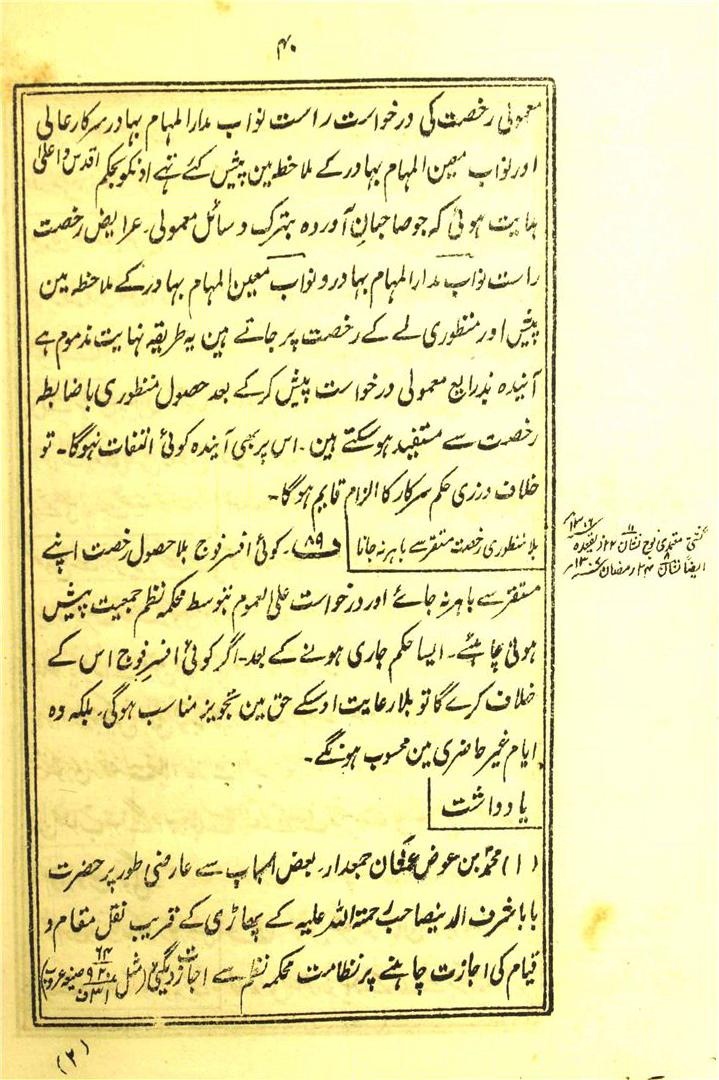 ۴۰
معمولی رخصت کی درخواست راست نواب مدارالمہام بہادر سرکار عالی
اور نواب معین المہام بہادر کے ملاخطہ مین پیش کئے تہے اونکو بحکم اقدس و اعلیٰ
ہدایت ہوئی کہ جو صاحبان آوردہ بترک وسائل معمولی۔ عرایض رخصت
راست نواب مدارالمہام بہادر و نواب معین المہام بہادر کے ملاخطہ مین
پیش اور منظوری لے کے رخصت پر جاتے ہین یہ طریقہ نہایت مذموم ہے
آیندہ بذرایع معمولی درخواست پیش کرکے بعد حصول منظوری باضابطہ
رخصت سے مستفید ہوسکتے ہین۔ اس پر بھی آیندہ کوئی التفات نہوگا۔ تو
خلاف ورزی حکم سرکار کا الزام قایم ہوگا۔
بلا منظوری رخصت مستقر سے باہر نہ جانا
دفعہ ۸۹۔ کوئی افسر فوج بلا حصول رخصت اپنے
مستقر سے باہر نہ جائے اور درخواست علی العموم بتوسط محکمہ نظم جمعیت پیش
ہونی چاہئے۔ ایسا حکم جاری ہونے کے بعد۔ اگر کوئی افسر فوج اس کے
خلاف کرے گا تو بلا رعایت اوسکے حق مین تجویز مناسب ہوگی۔ بلکہ وہ
ایام غیر حاضری مین محسوب ہونگے۔
گشتی معتمدی فوج نشان ۱۱ ۲۲ ذیقعدہ ۱۳۰۶
ایضاً نشان ۸ ۲۴ رمضان
یادداشت
(۱) محمد بن عوض جمعدار۔ بعض اسباب سے عارضی طور پر حضرت
بابا شرف الدینصاحب رحمتہ اللہ علیہ کے پہاڑی کے قریب نقل مقام و
قیام کی اجازت چاہنے پر نظامت محکمہ نظم سے اجازت دیگئی (مثل صیغہ عروب)
(۲)